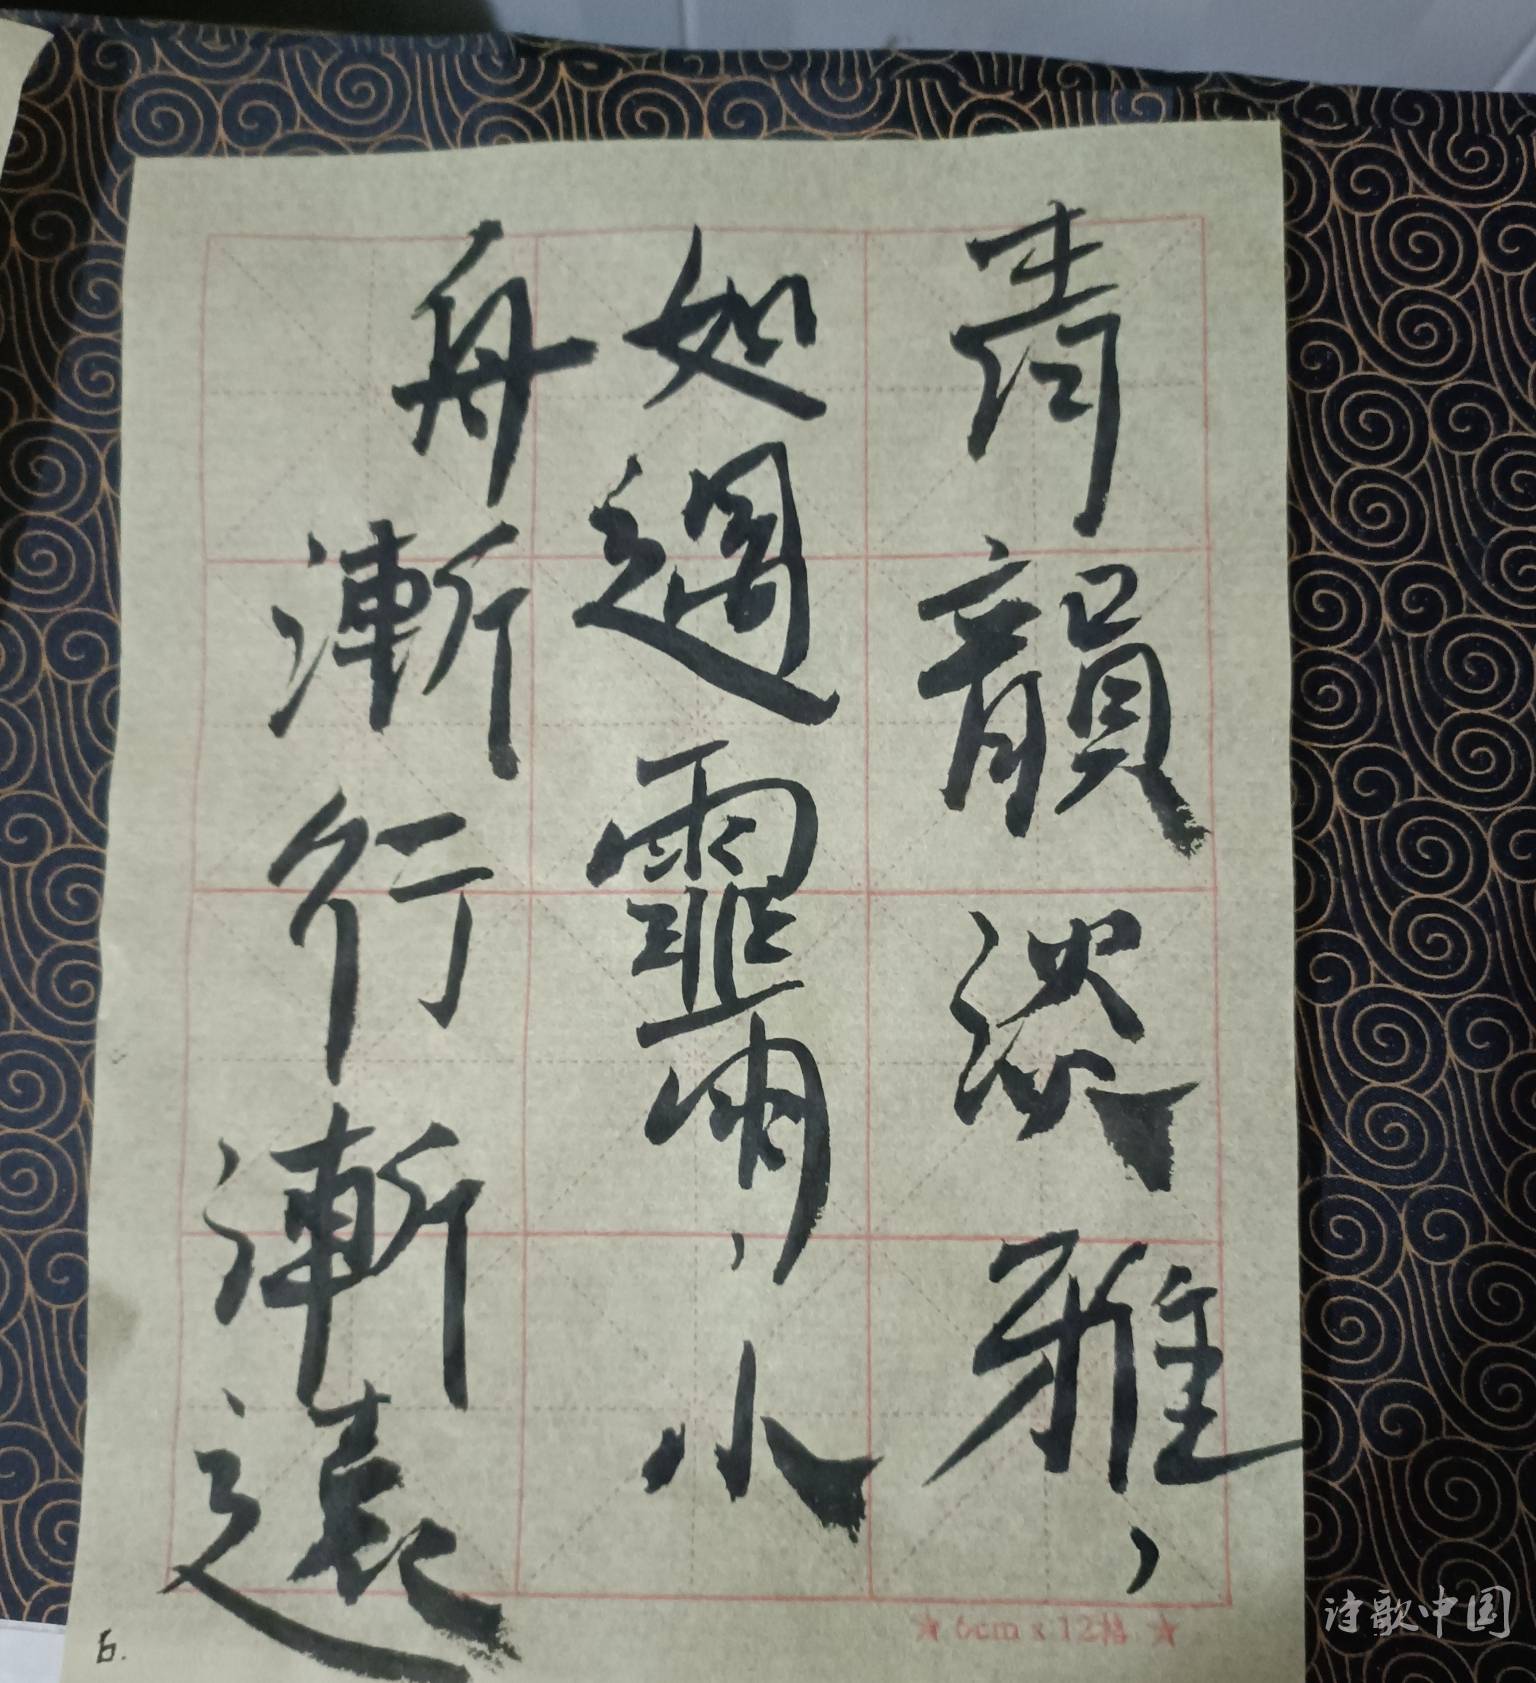 青韻淡雅，
如遇霏雨，小
舟漸行漸遠
★ 6cm x 12格 ★
6.
诗歌中国